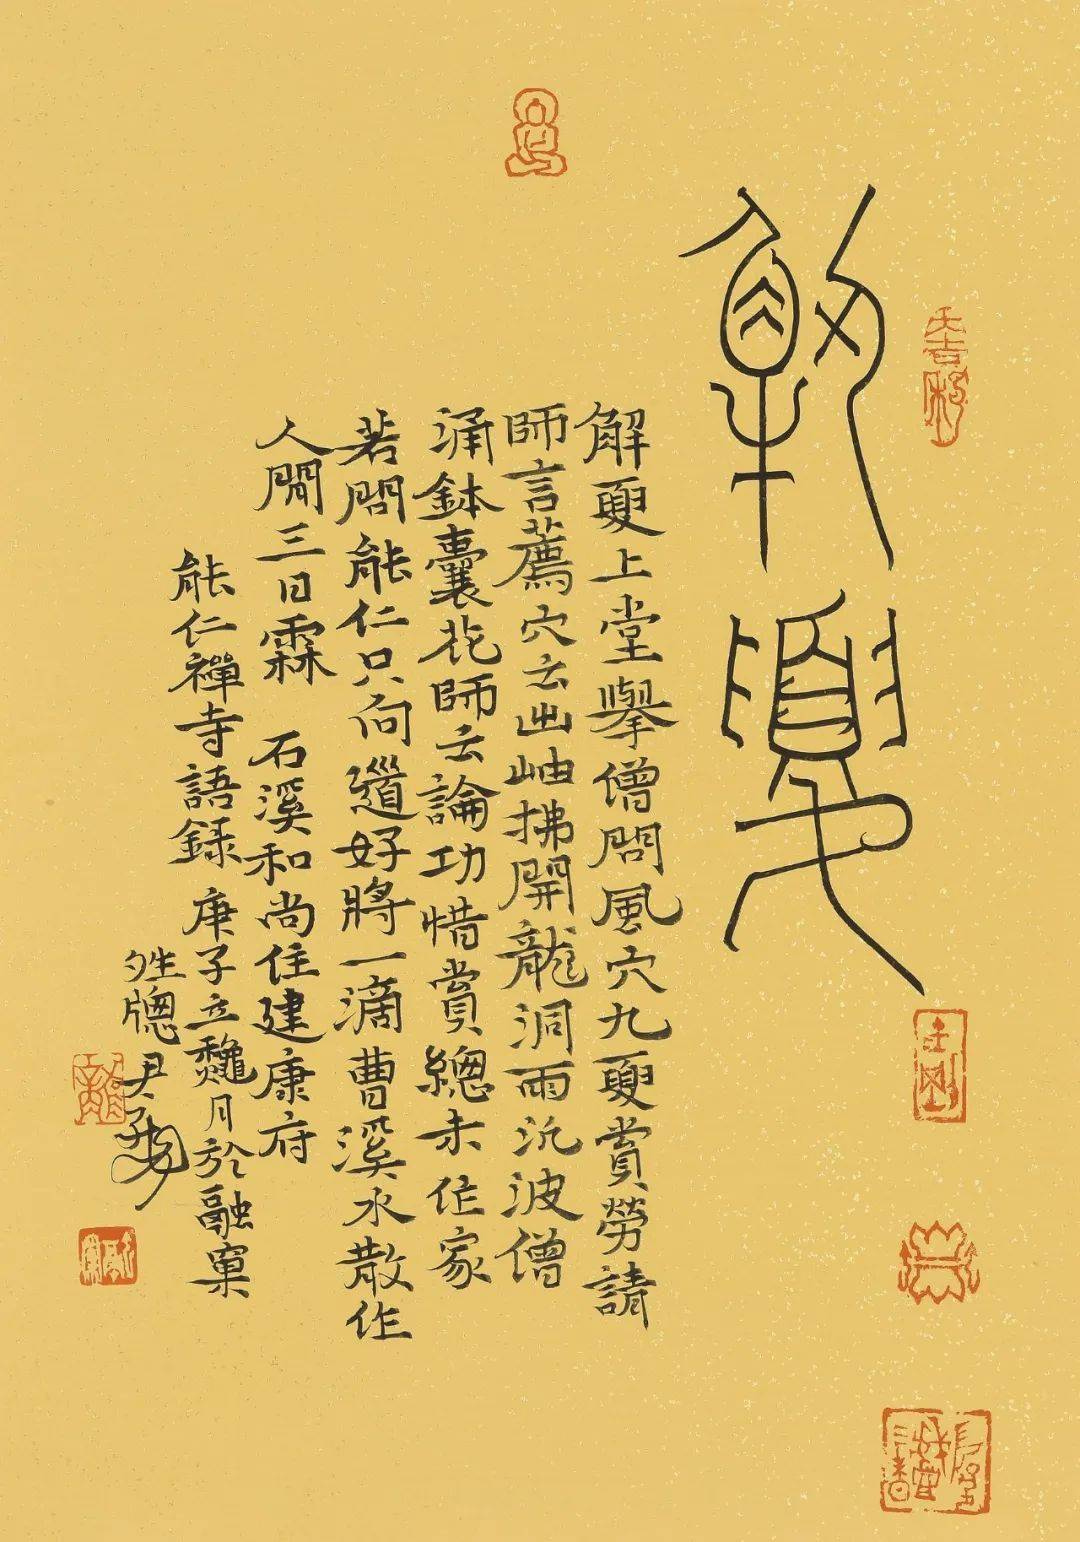 解夏
解夏上堂舉僧問風穴九夏賞勞請
師言薦穴云出岫拂開龍洞雨汎波僧
涌鉢囊花師云論功惜賞總未作家
若問能仁只向道好將一滴曹溪水散作
人間三日霖 石溪和尚住建康府
能仁禪寺語録 庚子立龝月於融窠
牕 尹